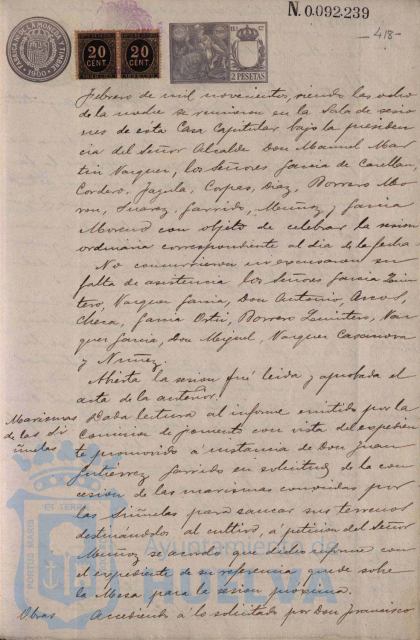 N. 0.092.239
-418-
FÁBRICA NACIONAL DE LA MONEDA Y TIMBRE
1900
20 CENT.
20 CENT.
11.ª C.ª
2 PESETAS
febrero de mil novecientos, siendo las ocho
de la noche se reunieron en la Sala de sesio
nes de esta Casa Capitular bajo la presiden
cia del Señor Alcalde Don Manuel Mar
tin Vazquez, los Señores Garcia de
Cordero, Jagula, Corpas, Diaz, Borrero Mo
ron, Suarez Garrido, Muñoz y Garcia
Moreno con objeto de celebrar la sesion
ordinaria correspondiente al dia de la fecha.
No concurrieron ni excusaron su
falta de asistencia los Señores Garcia Quin
tero, Vazquez Garcia, Don Antonio,
Checa, Garcia Ortiz, Borrero Quintero, Vaz
quez Garcia, Don Miguel, Vazquez Casanova
y Nuñez.
Abierta la sesion fué leida y aprobada el
acta de la anterior.
Marismas
de las Si
ñuelas
Dada lectura al informe emitido por la
Comision de fomento con vista del expedien
te promovido á instancia de Don Juan
Gutiérrez Garrido en solicitud de la con
cesion de las marismas conocidas por
las Siñuelas para sanear sus terrenos
destinandolos al cultivo, á peticion del Señor
Muñoz se acordó que dicho informe con
el expediente de su referencia quede sobre
la Mesa para la sesion próxima.
Obras
Accediendo á lo solicitado por Don Francisco
Ayuntamiento de
HUELVA
PORTUS MARIS
ET TERRAE